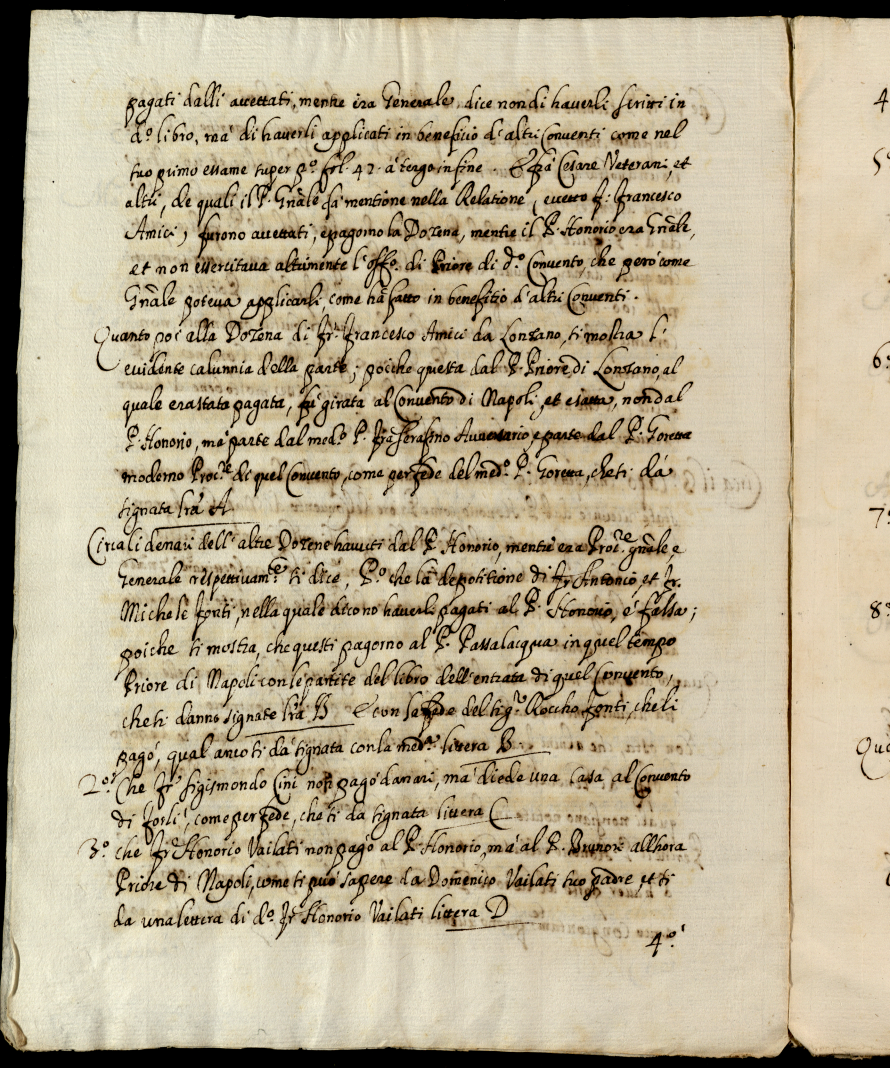 pagati dalli accettati, mentre era Generale, dice non di haverli scritti in
d.º libro, mà di haverli applicati in beneficio d'altri Conventi come nel
suo primo essame super p.º fol. 42 à tergo in fine. Et frà Cesare Veterani, et
altri, de quali il P. Gnãle fà mentione nella Relatione, eccetto fr. Francesco
Amici, furono accettati, e pagorno la Dozena, mentre il P. Honorio era Gnãle,
et non essercitava altrimente l'offo. di Priore di d.º Convento, che però come
Gnãle poteva applicarli, come hà fatto in benefitio d'altri Conventi.
Quanto poi alla Dozena di fr. Francesco Amici da Lonzano, si mostra l'
evidente calunnia della parte; poiche questa dal P. Priore di Lonzano, al
quale era stata pagata, fù girata al Convento di Napoli, et esatta, non dal
P. Honorio, mà parte dal med.º P. frà Serafino Avversario, e parte dal P. Goretta
moderno Proc.re di quel Convento, come per fede del med.º P. Goretta, che si dà
signata lrã A
Circa li denari dell'altre Dozene havuti dal P. Honorio, mentre era Proc.re gnãle e
Generale respettivam.te si dice, P.º che la depositione di fr. Antonio, et fr.
Michele fonti, nella quale dicono haverli pagati al P. Honorio, è falsa;
poiche si mostra, che questi pagorno al P. Passalacqua in quel tempo
Priore di Napoli con le partite del libro dell'entrata di quel Convento,
che si danno signate lrã B Et con la fede del sig.r Roccho fonti, che li
pagò, qual anco si dà signata con la med.ma littera B
2.º Che fr. Sigismondo Cini non pagò danari, mà diede una Casa al Convento
di Forlì, come per fede, che si dà signata littera C
3.º che fr. Honorio Vailati non pagò al P. Honorio, mà al P. Brunori allhora
Priore di Napoli, come si può sapere da Domenico Vailati suo padre, et si
da una lettera di d.º fr. Honorio Vailati littera D
4.º
4
5.º
6.º
7.º
8.º